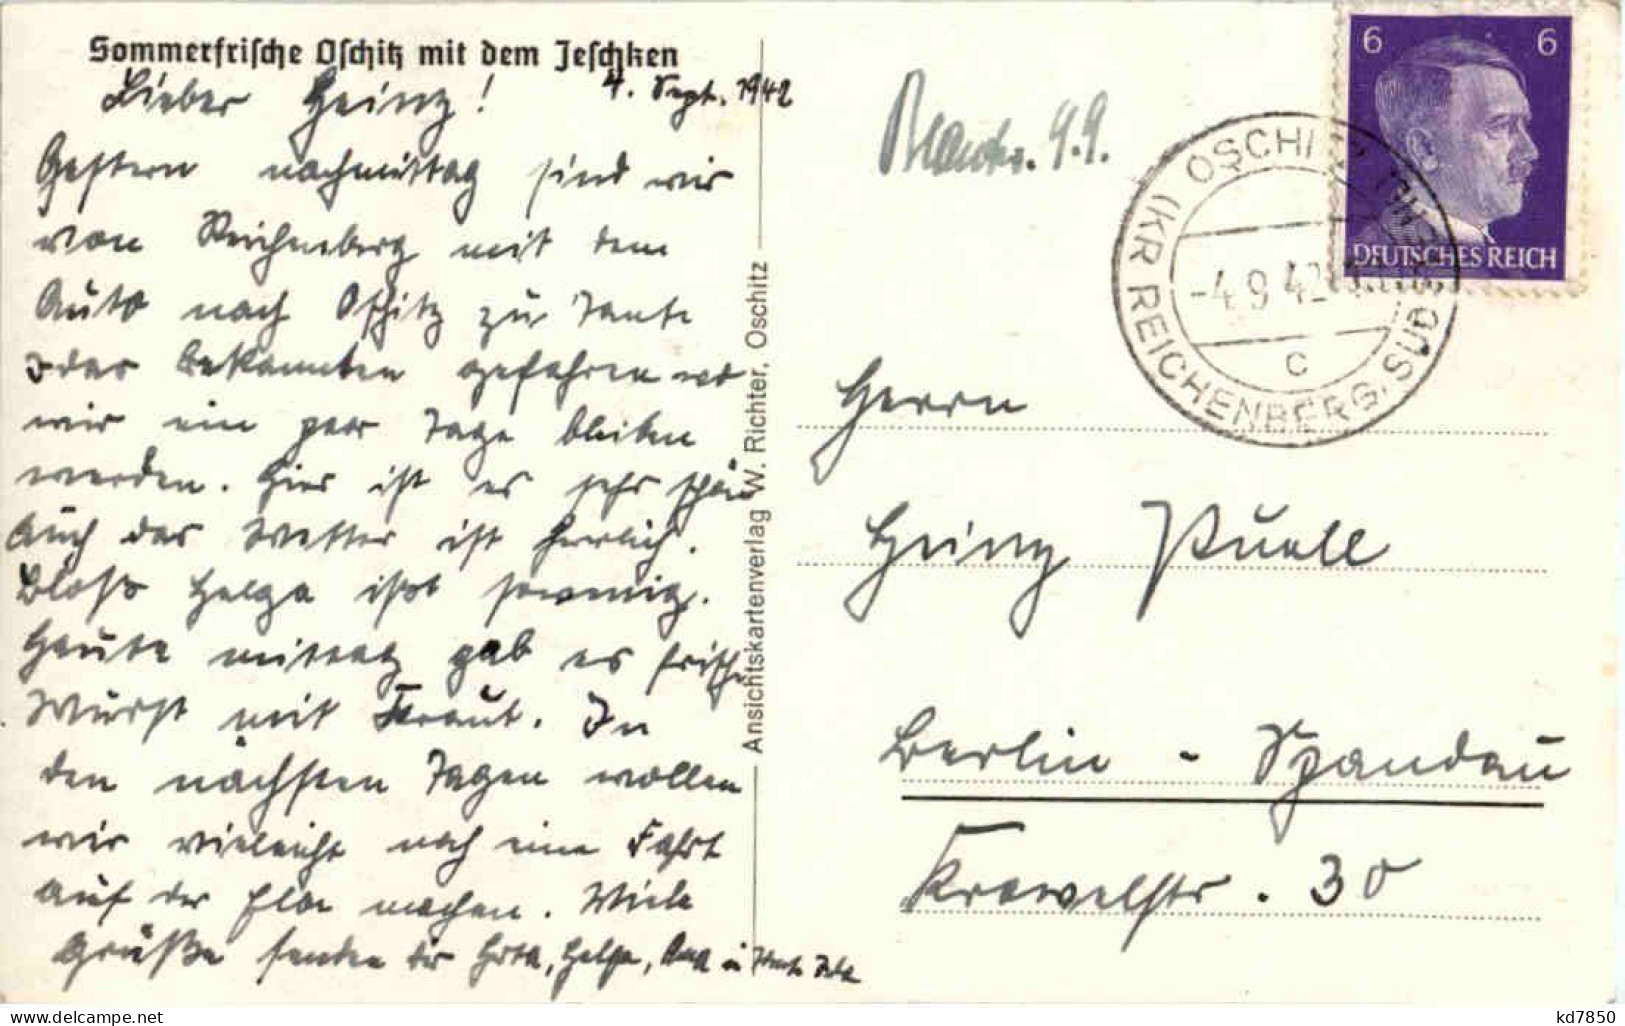 Sommerfrische Oschitz mit dem Jeschken
4. Sept. 1942
Lieber Heinz!
Gestern nachmittag sind wir
von Reichenberg mit dem
Auto nach Oschitz zu Tante
oder bekannten gefahren wo
wir ein paar Tage bleiben
werden. Hier ist es sehr schön
Auch das Wetter ist herrlich.
Bloß Helga ißt so wenig.
Heute mittag gab es frische
Wurst mit Kraut. In
den nächsten Tagen wollen
wir vieleicht noch eine Fahrt
auf der Elbe machen. Viele
Grüße senden dir Herta, Helga, u Tante
Ansichtskartenverlag W. Richter, Oschitz
9.9.
6 6
DEUTSCHES REICH
OSCHITZ
(KR REICHENBERG, SUDETENL
-4 9 42
c
Herrn
Heinz Puall
Berlin - Spandau
Krowelstr. 30
kd7850